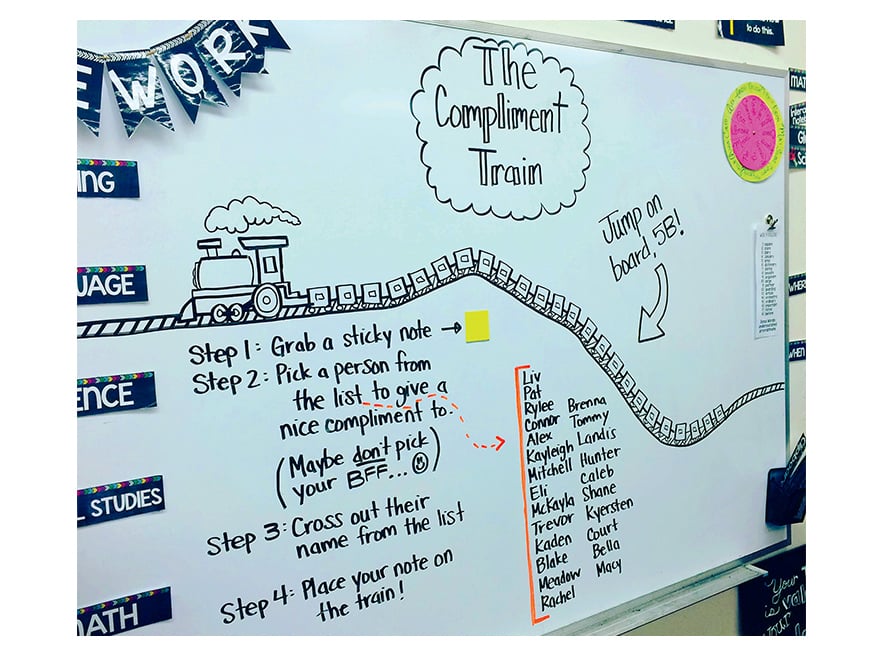 E WORK
to do this.
The
Compliment
Train
Jump on
board, 5B!
Step 1: Grab a sticky note →
Step 2: Pick a person from
the list to give a
nice compliment to.
(Maybe don't pick
your BFF... ☺)
Step 3: Cross out their
name from the list
Step 4: Place your note on
the train!
Liv
Pat
Rylee Brenna
Connor Tommy
Alex Landis
Kayleigh Hunter
Mitchell Caleb
Eli Shane
McKayla Kyersten
Trevor Court
Kaden Bella
Blake Macy
Meadow
Rachel
ING
UAGE
ENCE
L STUDIES
MATH
MAT
WHER
WHEN
Your
is
your